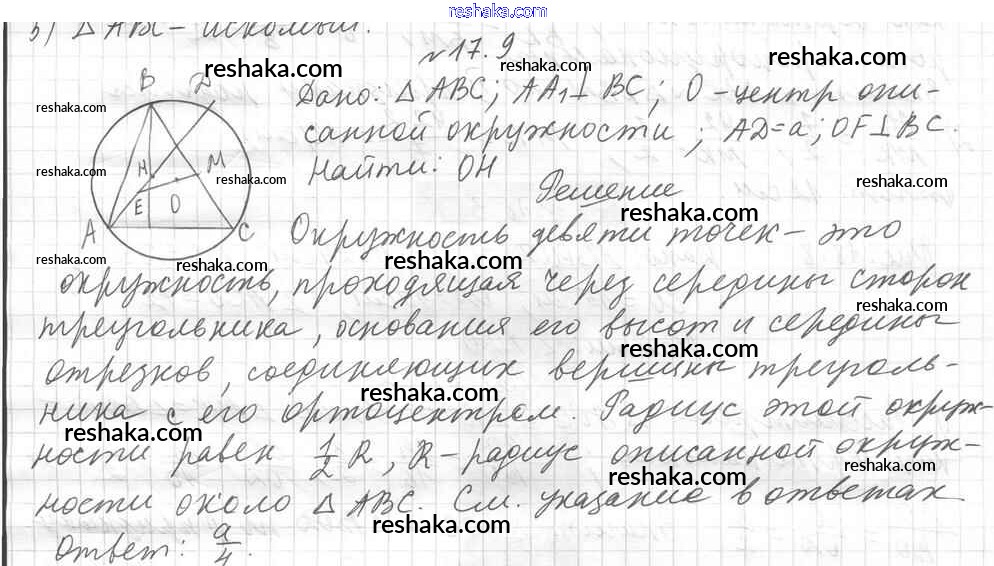 reshaka.com
3) △ABC - искомый.
№17.9
reshaka.com
reshaka.com
reshaka.com
reshaka.com
B D
Дано: △ABC; AA₁⊥BC; O - центр опи-
reshaka.com
санной окружности; AD=a; OF⊥BC.
reshaka.com
Найти: OH
H M
reshaka.com
reshaka.com
reshaka.com
E O
Решение
reshaka.com
A C
Окружность девяти точек - это
reshaka.com
reshaka.com
окружность, проходящая через середины сторон
reshaka.com
треугольника, основания его высот и середины
reshaka.com
отрезков, соединяющих вершины треуголь-
reshaka.com
ника с его ортоцентрам. Радиус этой окруж-
reshaka.com
ности равен 1/2 R, R - радиус описанной окруж-
reshaka.com
ности около △ABC. См. указание в ответах
reshaka.com
Ответ: a/4.